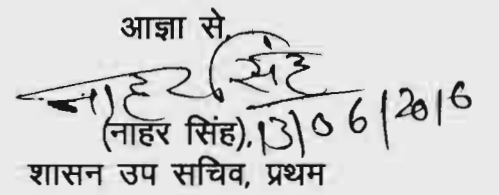 आज्ञा से,
नाहर सिंह
(नाहर सिंह), 13/06/2016
शासन उप सचिव, प्रथम